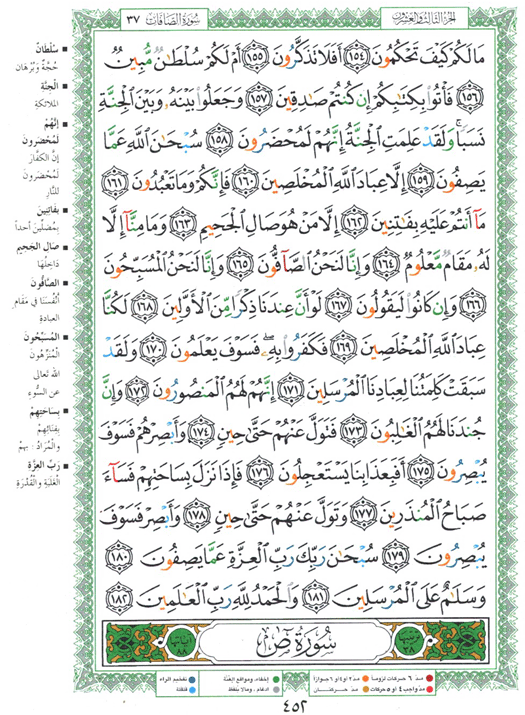 الجزء الثالث والعشرون
سورة الصافات ٣٧
مَا لَكُمْ كَيْفَ تَحْكُمُونَ ١٥٤ أَفَلَا تَذَكَّرُونَ ١٥٥ أَمْ لَكُمْ سُلْطَانٌ مُّبِينٌ
١٥٦ فَأْتُوا بِكِتَابِكُمْ إِن كُنتُمْ صَادِقِينَ ١٥٧ وَجَعَلُوا بَيْنَهُ وَبَيْنَ الْجِنَّةِ
نَسَبًا وَلَقَدْ عَلِمَتِ الْجِنَّةُ إِنَّهُمْ لَمُحْضَرُونَ ١٥٨ سُبْحَانَ اللَّهِ عَمَّا
يَصِفُونَ ١٥٩ إِلَّا عِبَادَ اللَّهِ الْمُخْلَصِينَ ١٦٠ فَإِنَّكُمْ وَمَا تَعْبُدُونَ ١٦١
مَا أَنتُمْ عَلَيْهِ بِفَاتِنِينَ ١٦٢ إِلَّا مَنْ هُوَ صَالِ الْجَحِيمِ ١٦٣ وَمَا مِنَّا إِلَّا
لَهُ مَقَامٌ مَّعْلُومٌ ١٦٤ وَإِنَّا لَنَحْنُ الصَّافُّونَ ١٦٥ وَإِنَّا لَنَحْنُ الْمُسَبِّحُونَ
١٦٦ وَإِن كَانُوا لَيَقُولُونَ ١٦٧ لَوْ أَنَّ عِندَنَا ذِكْرًا مِّنَ الْأَوَّلِينَ ١٦٨ لَكُنَّا
عِبَادَ اللَّهِ الْمُخْلَصِينَ ١٦٩ فَكَفَرُوا بِهِ فَسَوْفَ يَعْلَمُونَ ١٧٠ وَلَقَدْ
سَبَقَتْ كَلِمَتُنَا لِعِبَادِنَا الْمُرْسَلِينَ ١٧١ إِنَّهُمْ لَهُمُ الْمَنصُورُونَ ١٧٢ وَإِنَّ
جُندَنَا لَهُمُ الْغَالِبُونَ ١٧٣ فَتَوَلَّ عَنْهُمْ حَتَّى حِينٍ ١٧٤ وَأَبْصِرْهُمْ فَسَوْفَ
يُبْصِرُونَ ١٧٥ أَفَبِعَذَابِنَا يَسْتَعْجِلُونَ ١٧٦ فَإِذَا نَزَلَ بِسَاحَتِهِمْ فَسَاءَ
صَبَاحُ الْمُنذَرِينَ ١٧٧ وَتَوَلَّ عَنْهُمْ حَتَّى حِينٍ ١٧٨ وَأَبْصِرْ فَسَوْفَ
يُبْصِرُونَ ١٧٩ سُبْحَانَ رَبِّكَ رَبِّ الْعِزَّةِ عَمَّا يَصِفُونَ ١٨٠
وَسَلَامٌ عَلَى الْمُرْسَلِينَ ١٨١ وَالْحَمْدُ لِلَّهِ رَبِّ الْعَالَمِينَ ١٨٢
ترتيبها ٣٨
سورة ص
آياتها
سُلْطَانٌ
حُجَّةٌ وَبُرْهَان
الْجِنَّةِ
الملائكة
إِنَّهُمْ
لَمُحْضَرُونَ
إنَّ الكفّارَ
لَمُحْضَرُونَ
للنَّارِ
بِفَاتِنِينَ
بِمُضِلِّينَ أحداً
صَالِ الْجَحِيمِ
دَاخِلُهَا
الصَّافُّونَ
أنْفُسَنَا في مَقَامِ
العبادةِ
الْمُسَبِّحُونَ
الْمُنَزِّهُونَ
الله تعالى
عن السُّوء
بِسَاحَتِهِمْ
بِفِنَائِهِمْ
والْمُرَادُ: بِهِمْ
رَبِّ الْعِزَّةِ
الْغَلَبَةِ والْقُدْرَةِ
مدّ ٦ حركات لزوماً
مدّ ٢ أو ٤ أو ٦ جوازاً
إخفاء، ومواقع الغُنَّة
تفخيم الراء
مدّ واجب ٤ أو ٥ حركات
مدّ حركتان
ادغام، وما لا يُلفظ
قلقلة
٤٥٢